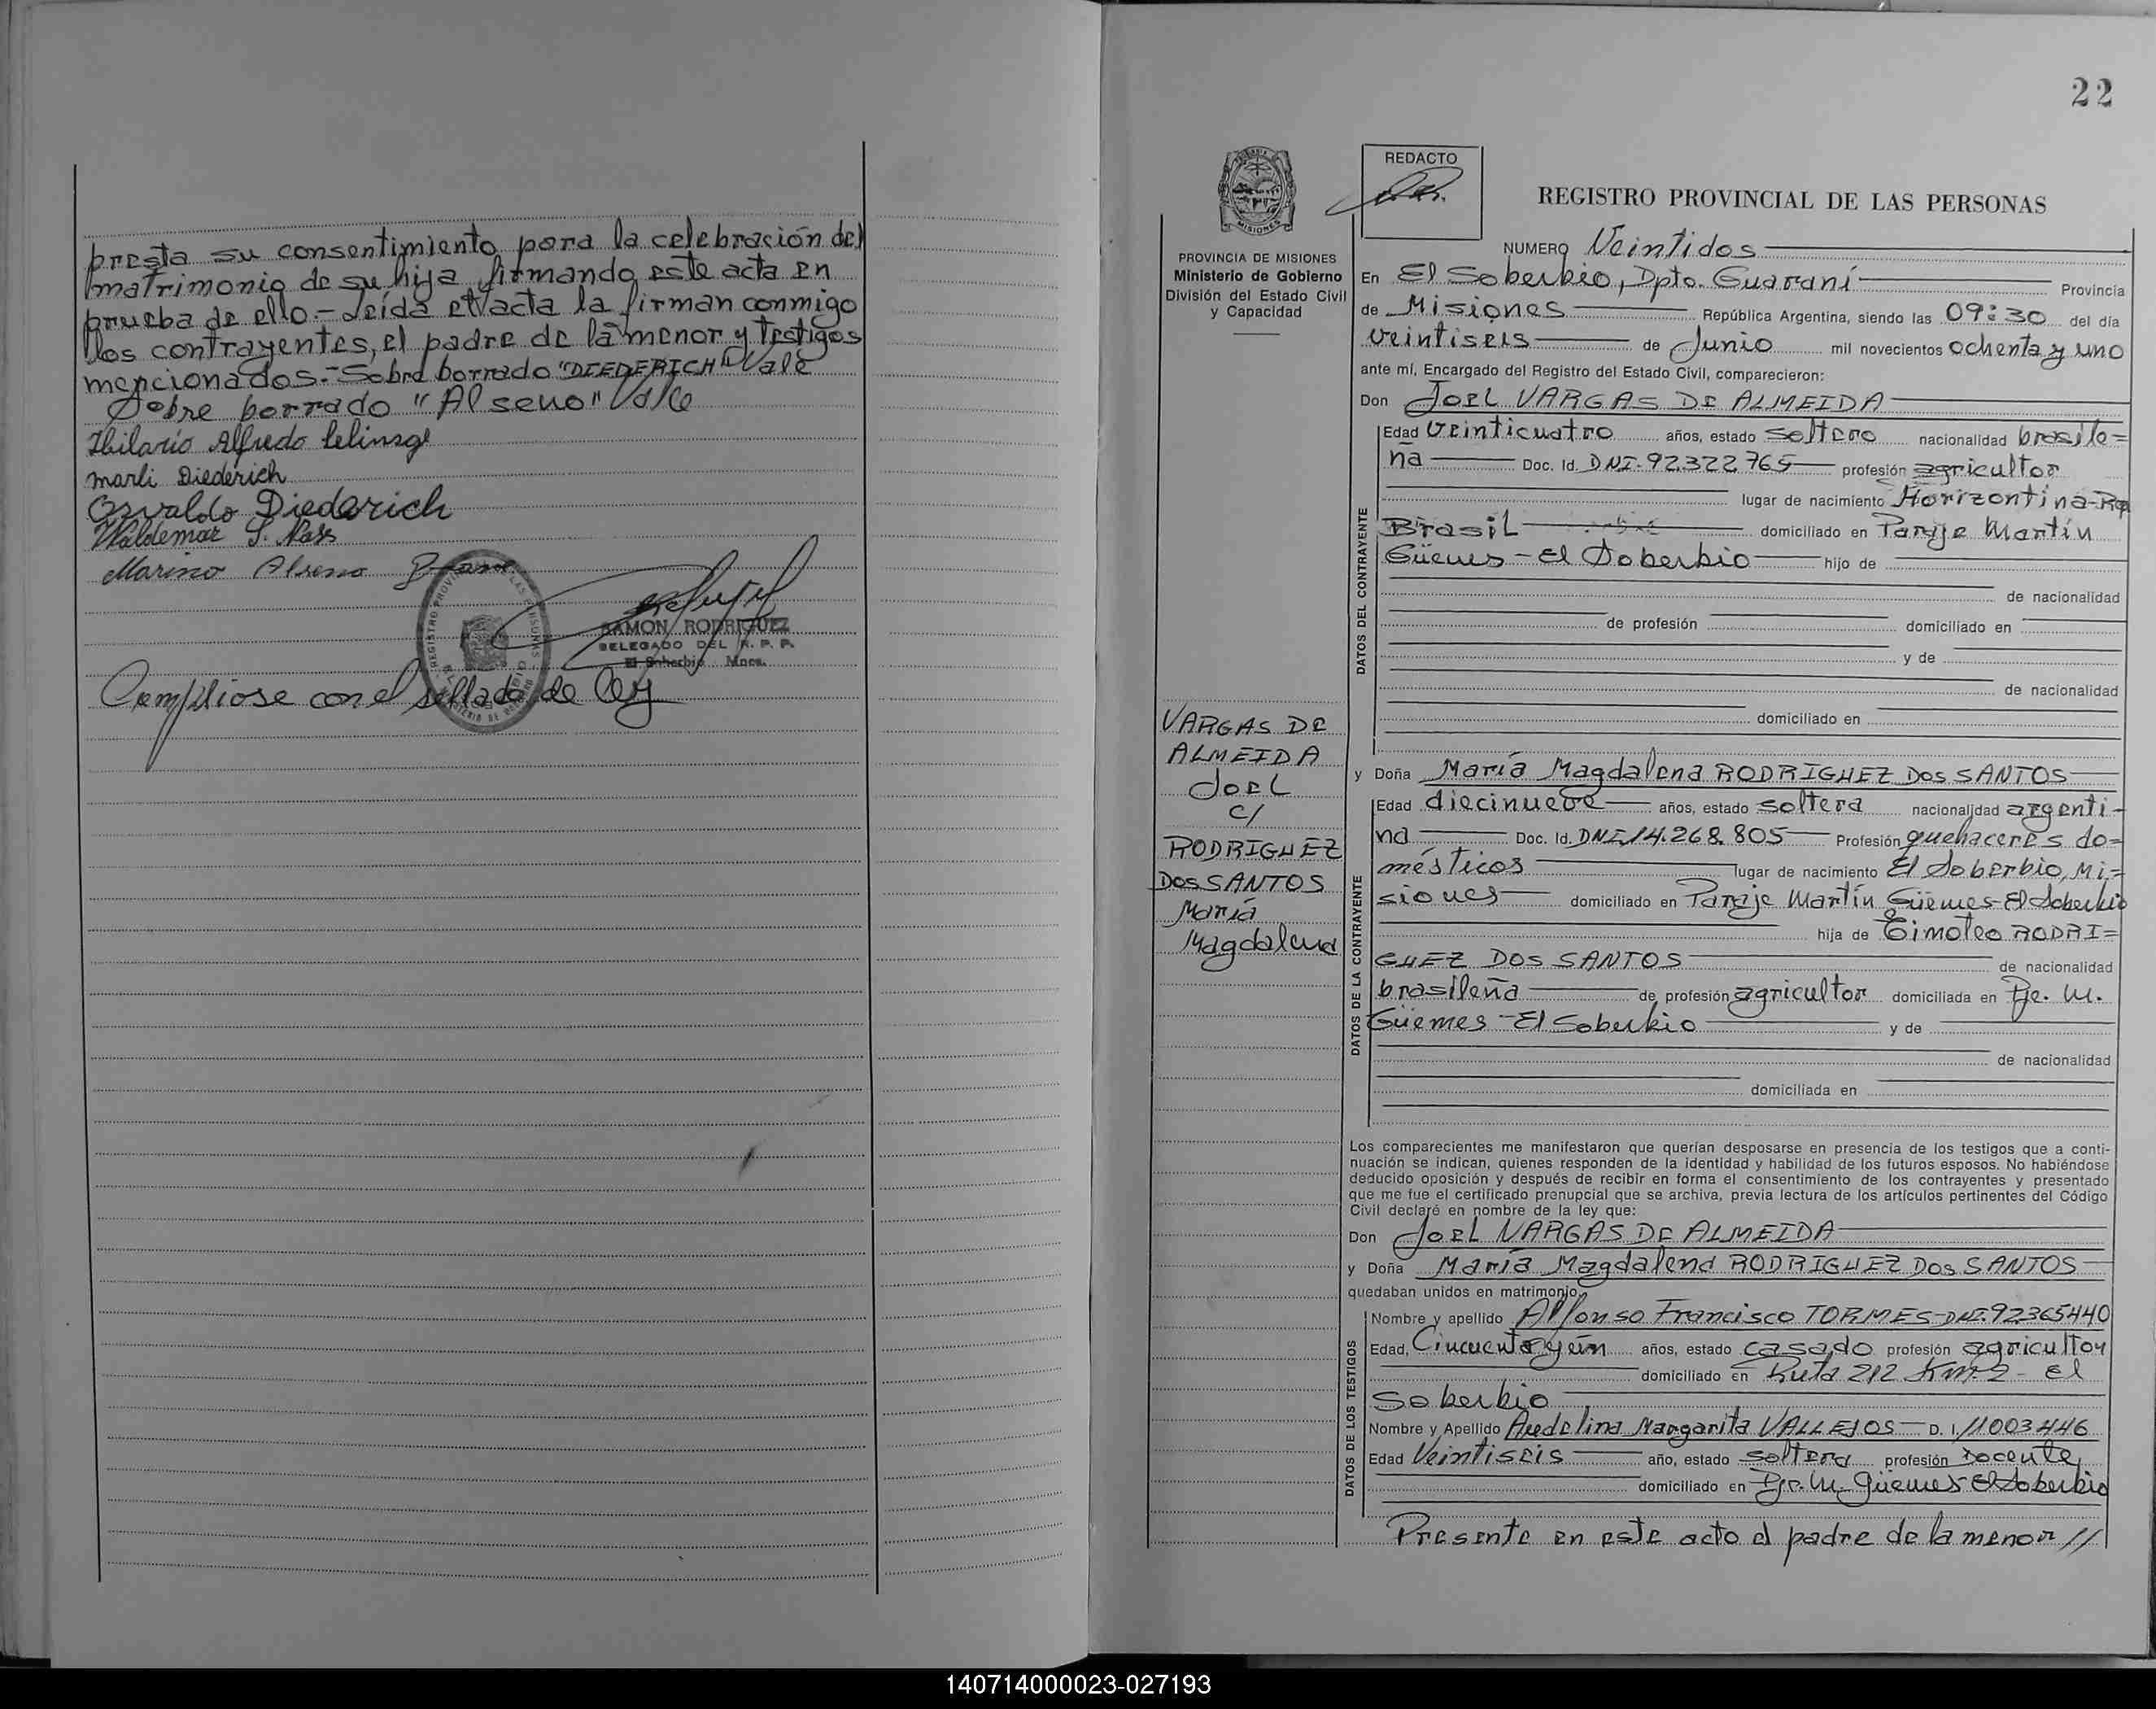 presta su consentimiento para la celebración del
matrimonio de su hija firmando este acta en
prueba de ello.- Leída el acta la firman conmigo
los contrayentes, el padre de la menor y testigos
mencionados.- Sobre borrado "DIEDERICH" Vale
Sobre borrado "Alseno" Vale
Hilario Alfredo
Marli Diederich
Osvaldo Diederich
Waldemar S.
Marino Alseno
RAMON RODRIGUEZ
DELEGADO DEL R. P. P.
El Soberbio Mnes.
Cumpliose con el sellado de ley
22
REDACTO
REGISTRO PROVINCIAL DE LAS PERSONAS
MISIONES
PROVINCIA DE MISIONES
Ministerio de Gobierno
División del Estado Civil
y Capacidad
VARGAS DE
ALMEIDA
Joel
c/
RODRIGUEZ
Dos SANTOS
María
Magdalena
NUMERO Veintidos
En El Soberbio, Dpto. Guaraní Provincia
de Misiones República Argentina, siendo las 09:30 del día
veintiseis de Junio mil novecientos ochenta y uno
ante mí, Encargado del Registro del Estado Civil, comparecieron:
Don Joel VARGAS DE ALMEIDA
DATOS DEL CONTRAYENTE
Edad veinticuatro años, estado soltero nacionalidad brasile=
ña Doc. Id. DNI-92.322.765 profesión agricultor
lugar de nacimiento Horizontina-Rep
Brasil domiciliado en Paraje Martín
Güemes - El Soberbio hijo de
de nacionalidad
de profesión domiciliado en
y de
de nacionalidad
domiciliado en
y Doña María Magdalena RODRIGUEZ Dos SANTOS
DATOS DE LA CONTRAYENTE
Edad diecinueve años, estado soltera nacionalidad argenti-
na Doc. Id. DNI.14.268.805 Profesión quehaceres do=
mésticos lugar de nacimiento El Soberbio, Mi=
siones domiciliado en Paraje Martín Güemes-El Soberbio
hija de Timoteo RODRI=
GUEZ DOS SANTOS de nacionalidad
brasileña de profesión agricultor domiciliada en Pje. M.
Güemes - El Soberbio y de
de nacionalidad
domiciliada en
Los comparecientes me manifestaron que querían desposarse en presencia de los testigos que a conti-
nuación se indican, quienes responden de la identidad y habilidad de los futuros esposos. No habiéndose
deducido oposición y después de recibir en forma el consentimiento de los contrayentes y presentado
que me fue el certificado prenupcial que se archiva, previa lectura de los artículos pertinentes del Código
Civil declaré en nombre de la ley que:
Don Joel VARGAS DE ALMEIDA
y Doña María Magdalena RODRIGUEZ Dos SANTOS
quedaban unidos en matrimonio
DATOS DE LOS TESTIGOS
Nombre y apellido Alfonso Francisco TORMES-DNI.92365440
Edad, Cincuenta y un años, estado casado profesión agricultor
domiciliado en Ruta 212 Km.2 - El
Soberbio
Nombre y Apellido Margarita VALLEJOS D. I. 11003446
Edad Veintiseis año, estado soltera profesión Docente
domiciliado en Pje. M. Güemes-El Soberbio
Presente en este acto el padre de la menor //
140714000023-027193